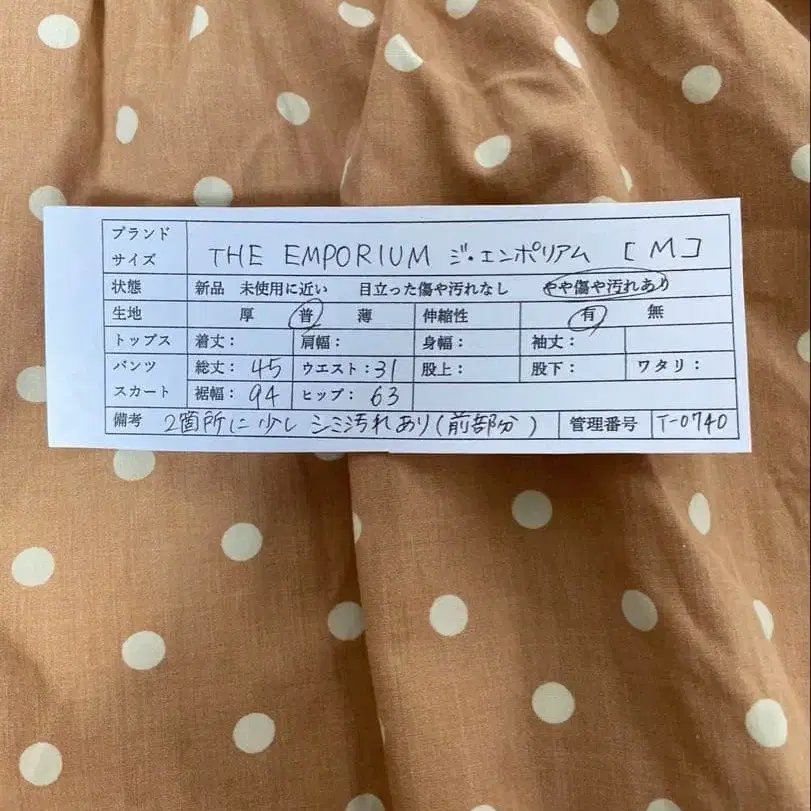 ブランド
サイズ THE EMPORIUM ジ・エンポリアム [M]
状態 新品 未使用に近い 目立った傷や汚れなし やや傷や汚れあり
生地 厚 普 薄 伸縮性 有 無
トップス 着丈: 肩幅: 身幅: 袖丈:
パンツ 総丈: 45 ウエスト: 31 股上: 股下: ワタリ:
スカート 裾幅: 94 ヒップ: 63
備考 2箇所に少しシミ汚れあり(前部分) 管理番号 T-0740